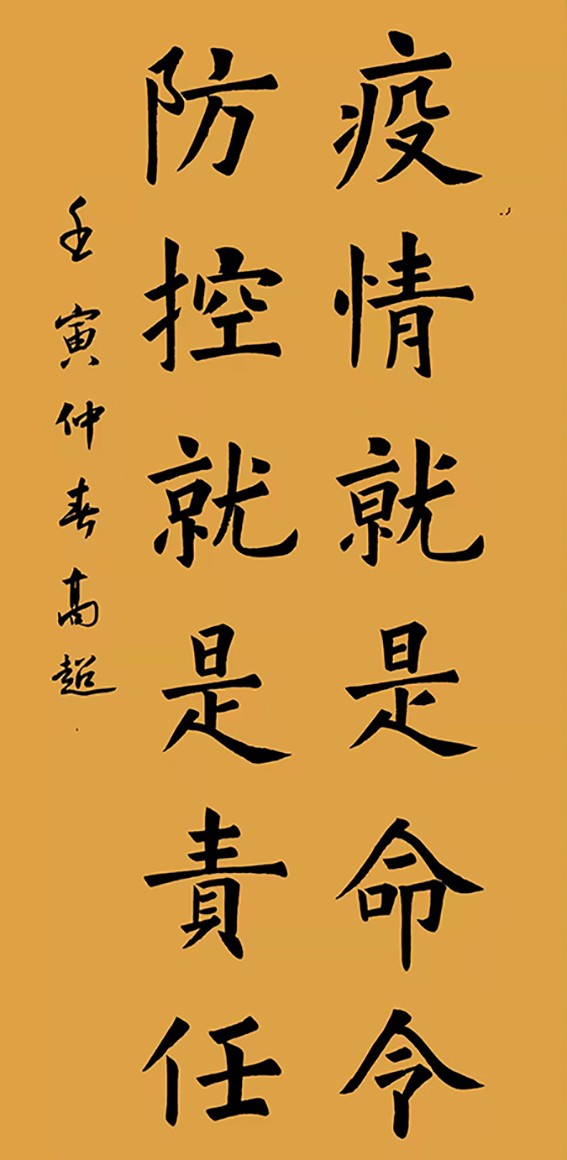 疫情就是命令
防控就是責任
壬寅仲春高超